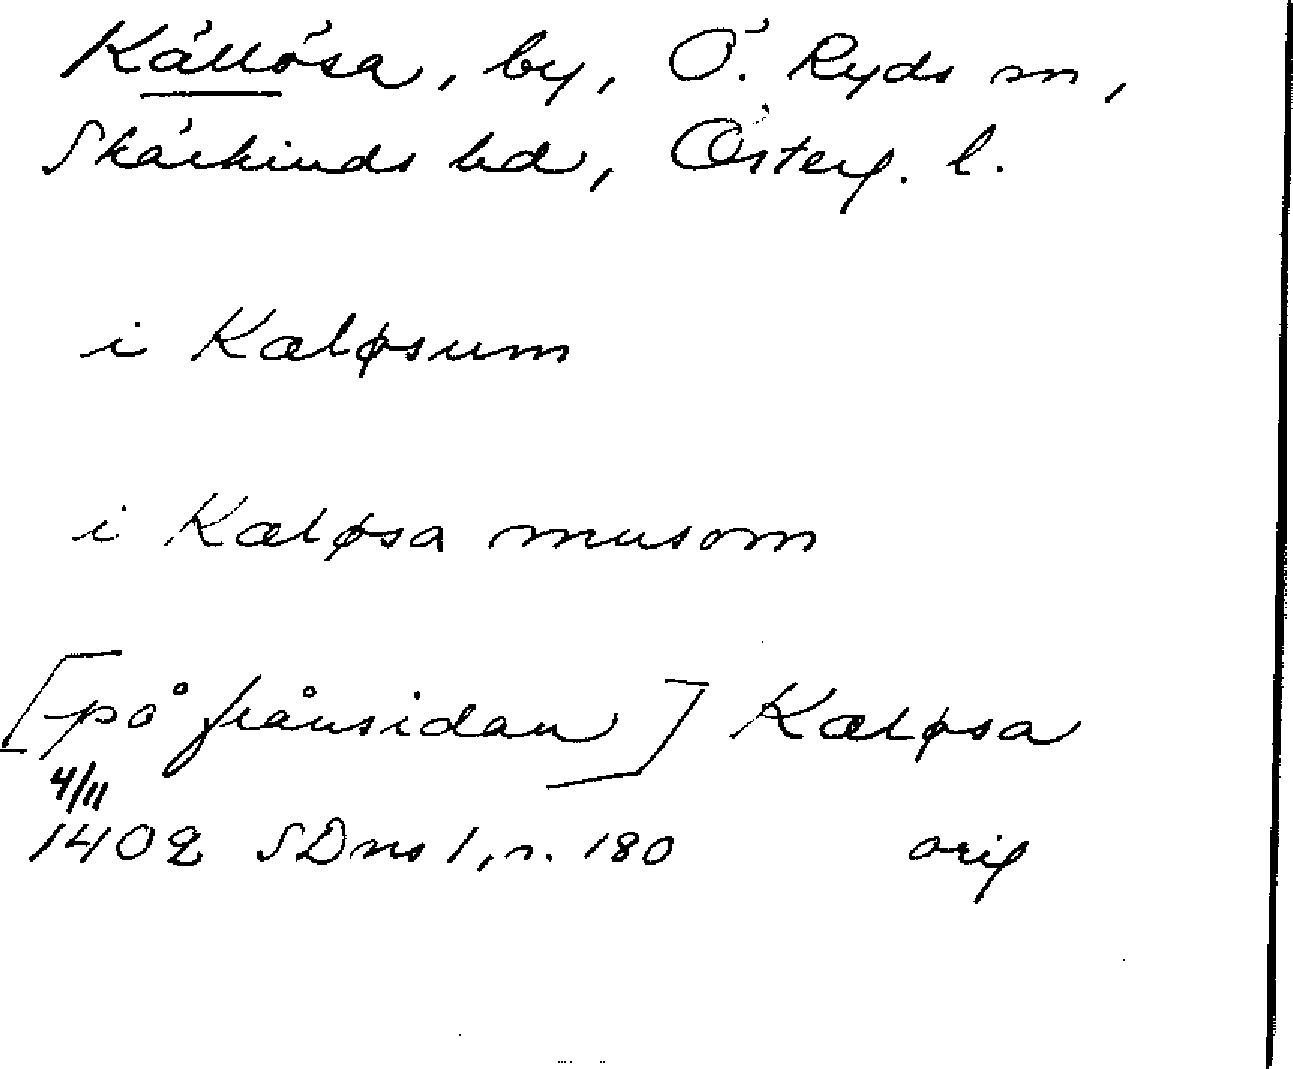 Källösa, by, Ö. Ryds sn,
Skärkinds hd, Österg. l.
i Kæløsum
i Kæløsa musom
[på frånsidan] Kæløsa
4/11
1402 SDns 1, s. 180 orig